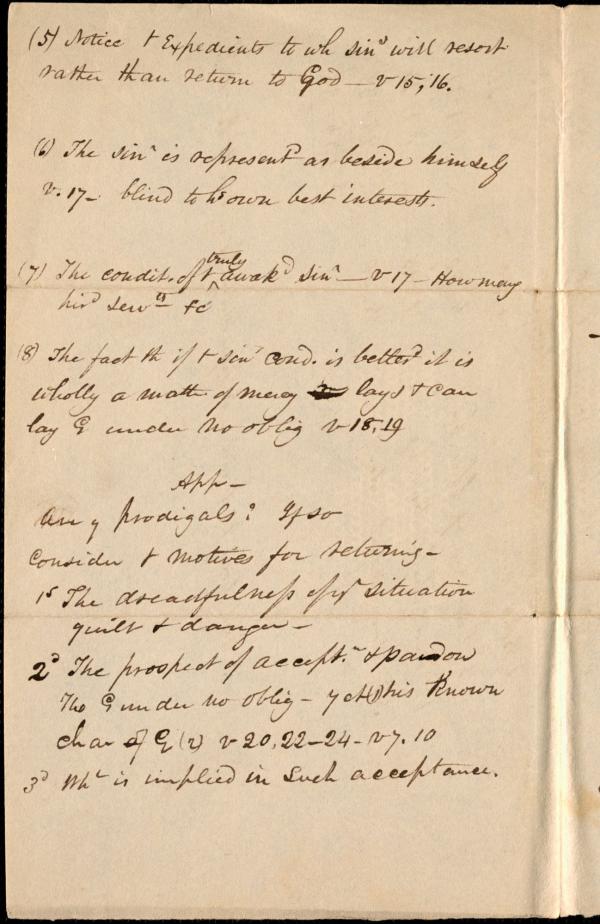 (5) Notice + Expedients to wh sinʳ will resort
rather than return to God — v 15, 16.
(6) The sinʳ is representᵈ as beside himself
v. 17 - blind to hˢ own best interests.
(7) The condit. of + truly awakᵈ sinʳ — v 17 - How many
hirᵈ servᵗˢ &c
(8) The fact th if + sinʳˢ cond. is betterᵈ it is
wholly a mattr of mercy lays + can
lay G under no oblig v 18, 19
App -
Are y prodigals? If so
Consider + motives for returning -
1ˢᵗ The dreadfulness of yʳ situation
guilt & danger -
2ᵈ The prospect of acceptᶜ & pardon
Tho G under no oblig - yet (1) his known
char of G (2) v 20, 22 - 24 - v 7. 10
3ᵈ Whᵗ is implied in such acceptance.